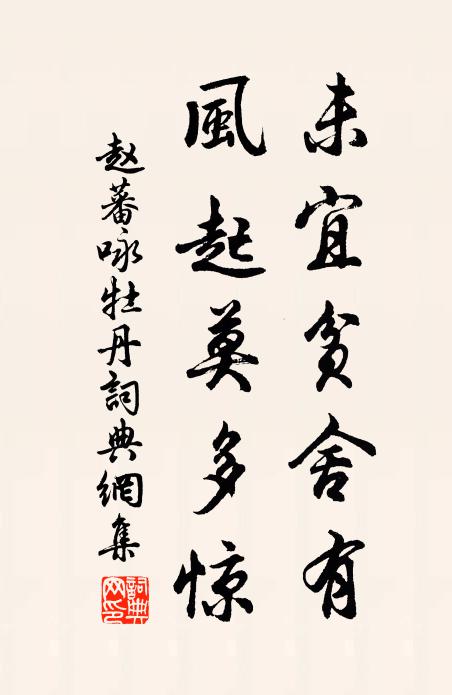 未宜貧舍有
風起莫多惊
赵蕃咏牡丹詞典網集
詞典
网印